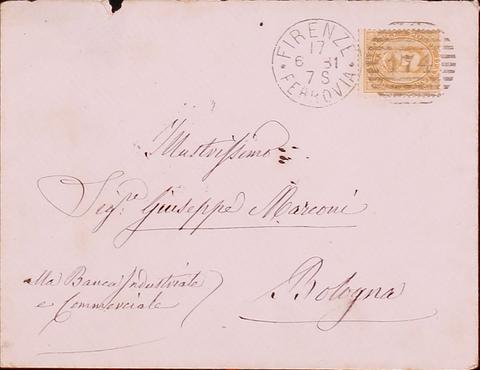 FIRENZE
17
6 81
7 S
FERROVIA
174
Illustrissimo
Sigr. Giuseppe Marconi
alla Banca Industriale
e Commerciale
Bologna